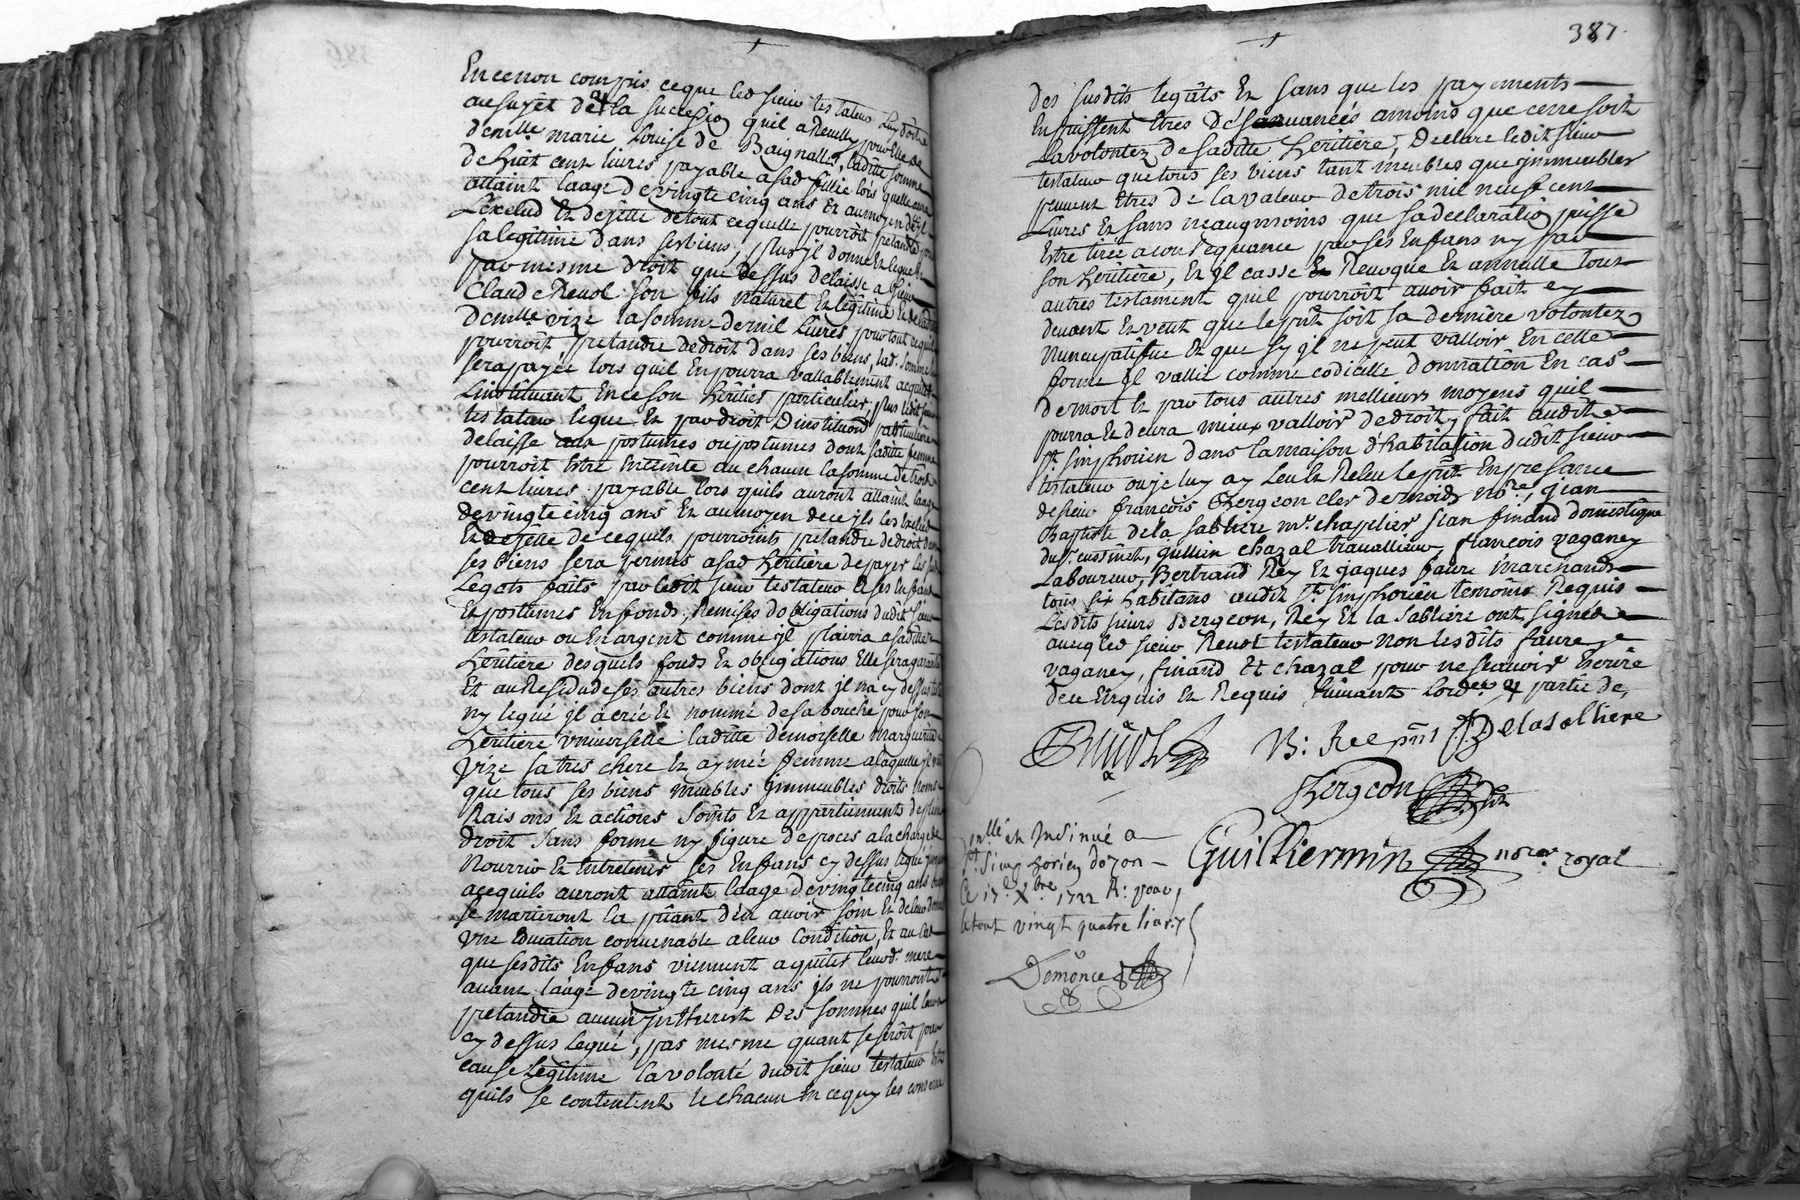 En ce non compris ce que led sieur testateur luy doit
au sujet de la succession quil a Receully pour Elle de
demlle marie Louise de Baignalle, ladite somme
de huit cent livres payable a sad fillie lors quelle aura
attaint laage de vingte cinq ans Et au moyen de ce il
Lexclud Et dejette de tout ce quelle pourroit pretandre pour
sa legitime dans ses biens, plus jl donne Et legue Et
par mesme droit que dessus delaisse a sieur
Claude Revol son fils naturel Et legitime Et de ladite
demlle vize la somme de mil Livres pour tout ce quil
pourroit pretandre de droit dans ses biens, lad. somme
sera payée lors quil En pourra vallablement acquiter
Linstituant En ce son heritier particulier, plus ledit sieur
testateur legue Et par droit Dinstitution particuliere
delaisse aux postumes ou postumes dont sa ditte femme
pourroit Estre Enteinte au chacun la somme de trois
cent livres payable lors quils auront attaint laage
de vingte cinq ans Et au moyen de ce jls les Exclud
Et dejette de ce quils pourroints pretandre de droit dans
ses biens sera permis a sad heritiere de payer les susd
Legats faits par ledit sieur testateur a ses Enfans
Et postumes En fonds, Remises dobligations dudit sieur
testateur ou En argent comme jl plairra a saditte
heritiere desquels fonds Et obligations Elle sera garante
Et au Residu de ses autres biens dont jl na cy dessus testé
ny legué jl a créé Et nommé de sa bouche pour son
heritiere vniverselle laditte demoiselle marguerite
vize sa tres chere Et aymée femme a laquelle jl veut
que tous ses biens meubles jmmeubles droits noms
Raisons Et actions soints Et appartiennents de plein
droit sans forme ny figure de proces a la charge de
Nourrir Et Entretenir ses Enfans cy dessus legué jusques
a ce quils auront attaint laage de vingte cinq ans ou
se marieront la priant den avoir soin Et de leur donner
vne Education convenable a leur Condition, Et au cas
que sesdits Enfans viennent a quiter leurd. mere
avant laage de vingte cinq ans jls ne pourront
pretandre aucun jntherest Des sommes quil leur a
cy dessus legué, pas mesme quant se seroit pour
cause Legitime la volonté dudit sieur testateur Est
quils se contentent le chacun En ce qui les concerne
387.
des susdits legats Et sans que les payements
En puissent Etres désavancées a moins que ce ne soit
La volontez de saditte heritiere, Declare ledit sieur
testateur que tous ses biens tant meubles que jmmeubles
peuvent Etres de la valeur de trois mil neuf cent
Livres Et sans neaugmoins que sa declaration puisse
Estre tirée a consequance par ses Enfans ny par
son heritiere, Et jl casse Revoque Et annulle tous
autres testament quil pourroit avoir fait cy
devant Et veut que le pnt soit sa derniere volontez
Nuncupatifue Et que sy jl ne peut valloir En cette
forme jl vallie comme codicille donnation En cas
de mort Et par tous autres mellieurs moyens quil
pourra Et devra mieux valloir de droit, fait audit
st. simphorien dans la maison d'habitation dudit sieur
testateur ou je luy ay leu Et Releu le pnt En presance
de sieur françois Bergeon clerc de moidt no.re, jean
Baptiste de la Sabliere mr. chapelier jean finand domestique
du sr. cussinet, guillien chazal travallieur, françois vaganey
Laboureur, Bertrand Rey Et jaques faure marchands
tous six habitans audit st. simphorien temoins Requis
Lesdits sieurs Bergeon, Rey Et la Sabliere ont signés
avec led sieur Revol testateur non lesdits faure
vaganey, finand Et chazal pour ne sçavoir Ecrire
de ce Enquis Et Requis suivant lordce
B: Rey pnt Delasabliere
Bergeon
Guilliermin no.re royal
Conllé et Insinué a
St. Simphorien dozon
le 17e Xbre 1722 R: pour
le tout vingt quatre livres
Demonce